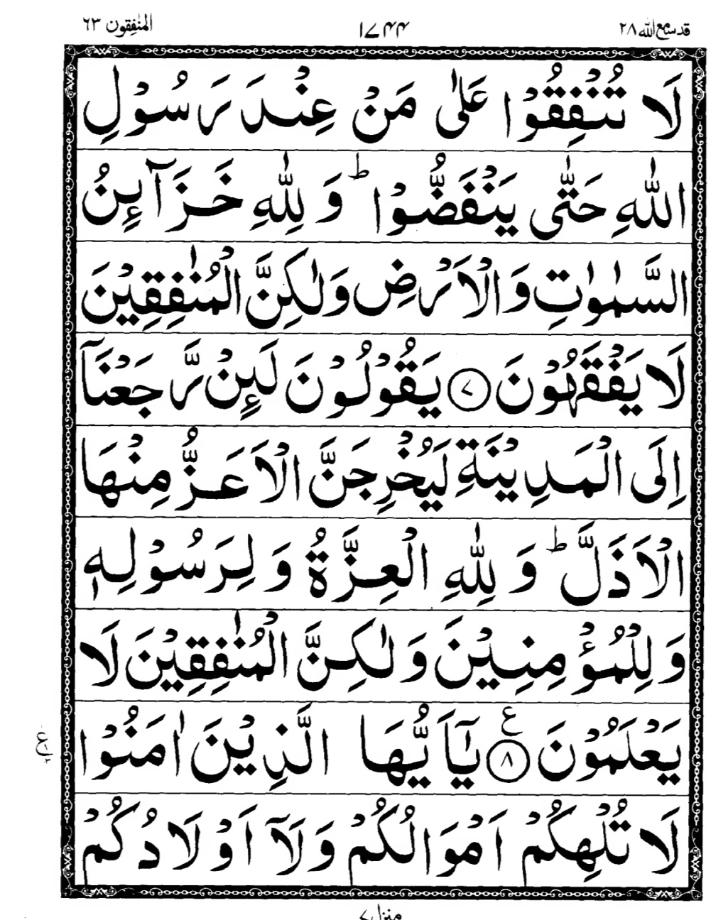 قد سمع الله ٢٨ ١٧٤٤ المنٰفقون ٦٣
لَا تُنْفِقُوْا عَلٰى مَنْ عِنْدَ رَسُوْلِ
اللّٰهِ حَتّٰى يَنْفَضُّوْا ؕ وَ لِلّٰهِ خَزَآئِنُ
السَّمٰوٰتِ وَ الْاَرْضِ وَلٰكِنَّ الْمُنٰفِقِيْنَ
لَا يَفْقَهُوْنَ ۝٧ يَقُوْلُوْنَ لَئِنْ رَّجَعْنَاۤ
اِلَى الْمَدِيْنَةِ لَيُخْرِجَنَّ الْاَعَزُّ مِنْهَا
الْاَذَلَّ ؕ وَ لِلّٰهِ الْعِزَّةُ وَ لِرَسُوْلِهٖ
وَ لِلْمُؤْمِنِيْنَ وَ لٰكِنَّ الْمُنٰفِقِيْنَ لَا
يَعْلَمُوْنَ ۝٨ ع يٰۤاَيُّهَا الَّذِيْنَ اٰمَنُوْا
لَا تُلْهِكُمْ اَمْوَالُكُمْ وَلَاۤ اَوْلَادُكُمْ
منزل ٧